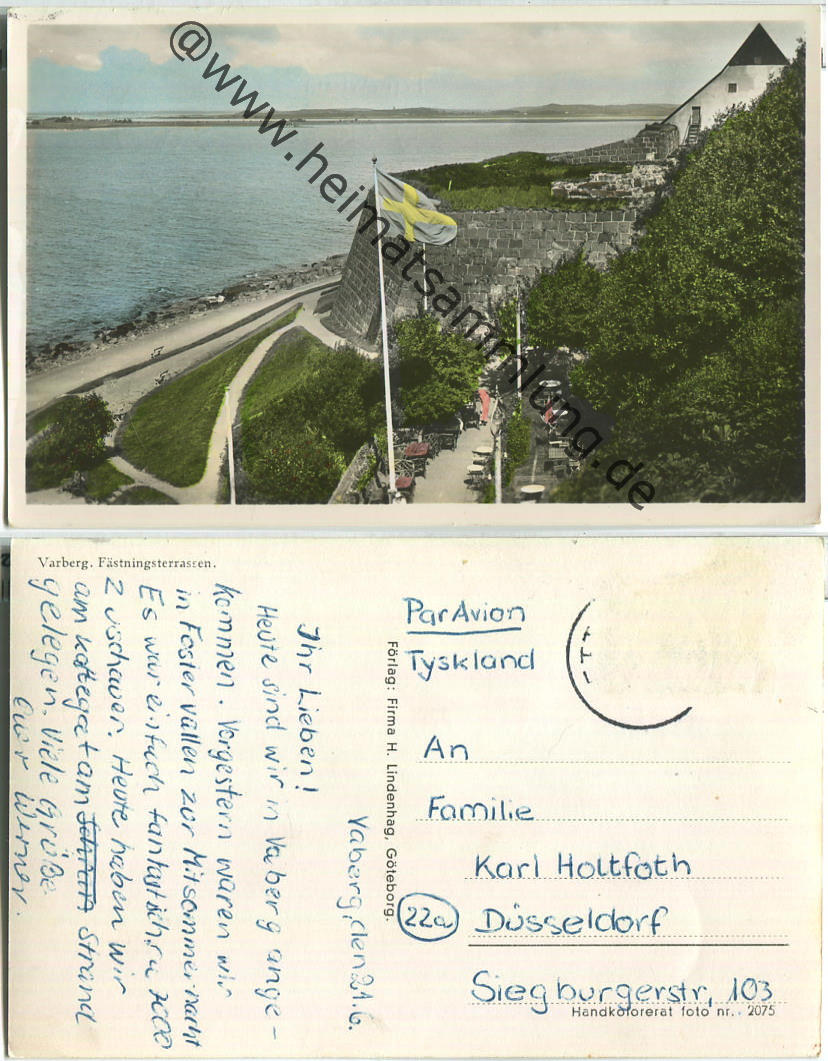 @www.heimatsammlung.de
Varberg. Fästningsterrassen.
Vaberg, den 21.6.
Ihr Lieben!
Heute sind wir in Vaberg ange-
kommen. Vorgestern waren wir
in Foster vallen zur Mitsommernacht
Es war einfach fantastisch, ca 7000
Zuschauer. Heute haben wir
am Kattegat am Strand
gelegen. Viele Grüße
Euer Werner.
Förlag: Firma H. Lindenhag, Göteborg.
Par Avion
Tyskland
An
Familie
Karl Holtfoth
22a Düsseldorf
Siegburgerstr, 103
Handkolorerat foto nr. 2075